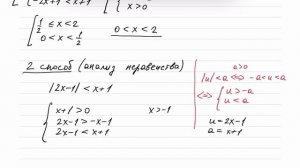 -2x+1 < x+1
x > 0
1/2 ≤ x < 2
0 < x < 1/2
0 < x < 2
2 способ (анализ неравенства)
|2x-1| < x+1
x+1 > 0
x > -1
2x-1 > -x-1
2x-1 < x+1
a>0
|u|<a ⇔ -a<u<a
⇔ { u > -a
u < a
u = 2x-1
a = x+1